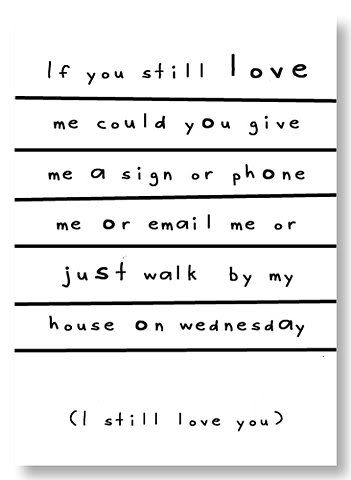 If you still love
me could you give
me a sign or phone
me or email me or
just walk by my
house on wednesday
(I still love you)